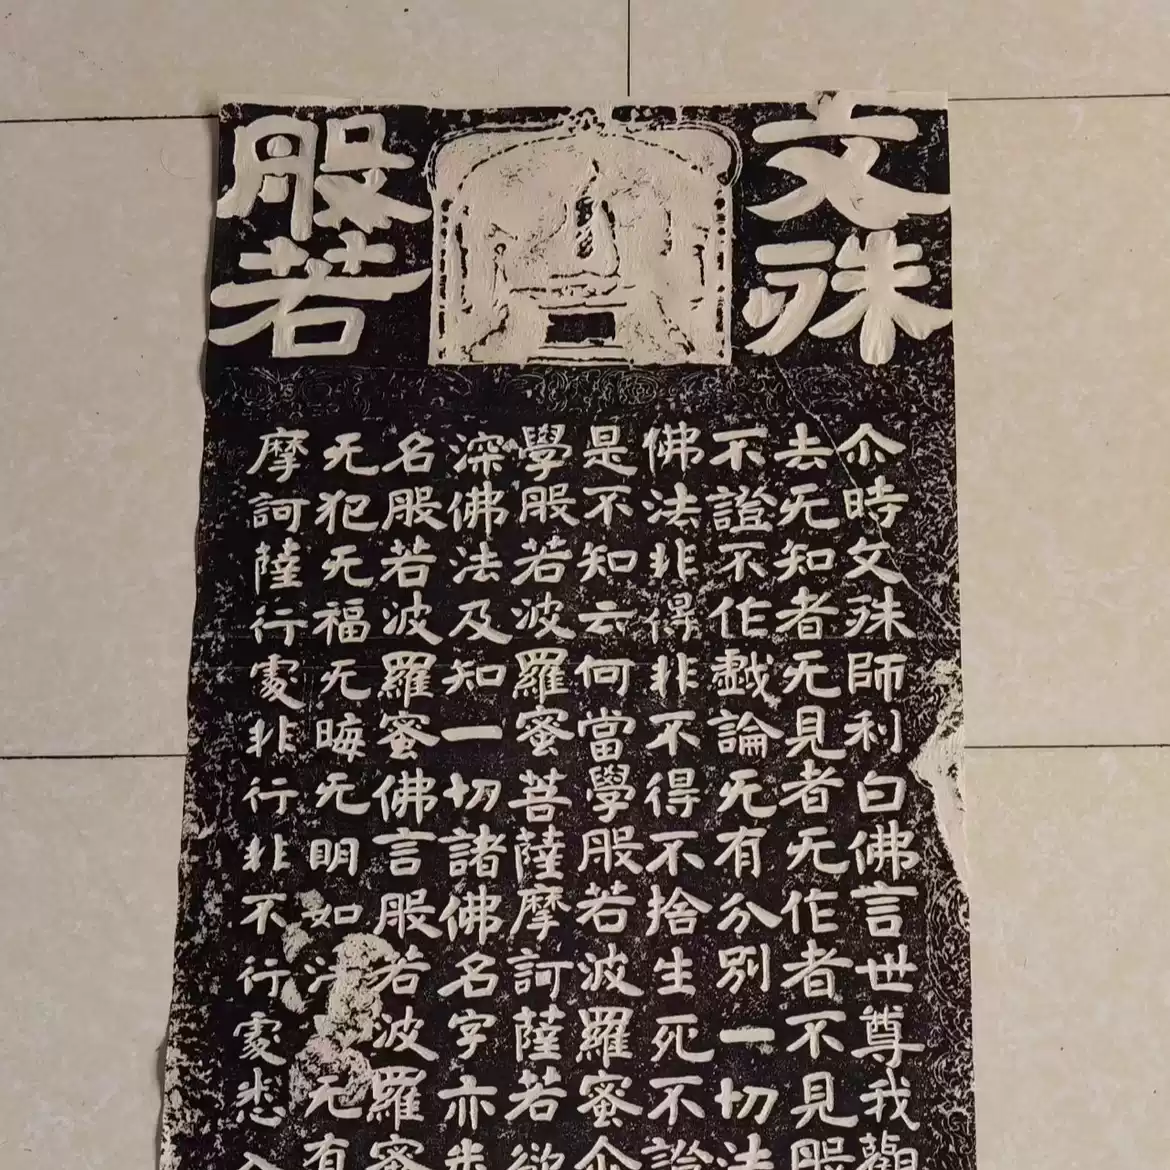 文殊
般若
尒時文殊師利白佛言世尊我觀
去无知者无見者无作者不見般
不證不作戱論无有分別一切法
佛法非得非不得不捨生死不證
是不知云何當學般若波羅蜜尒
學般若波羅蜜菩薩摩訶薩若欲
深佛法及知一切諸佛名字亦悉
名般若波羅蜜佛言般若波羅蜜
无犯无福无晦无明如法无有
摩訶薩行處非行非不行處悉入